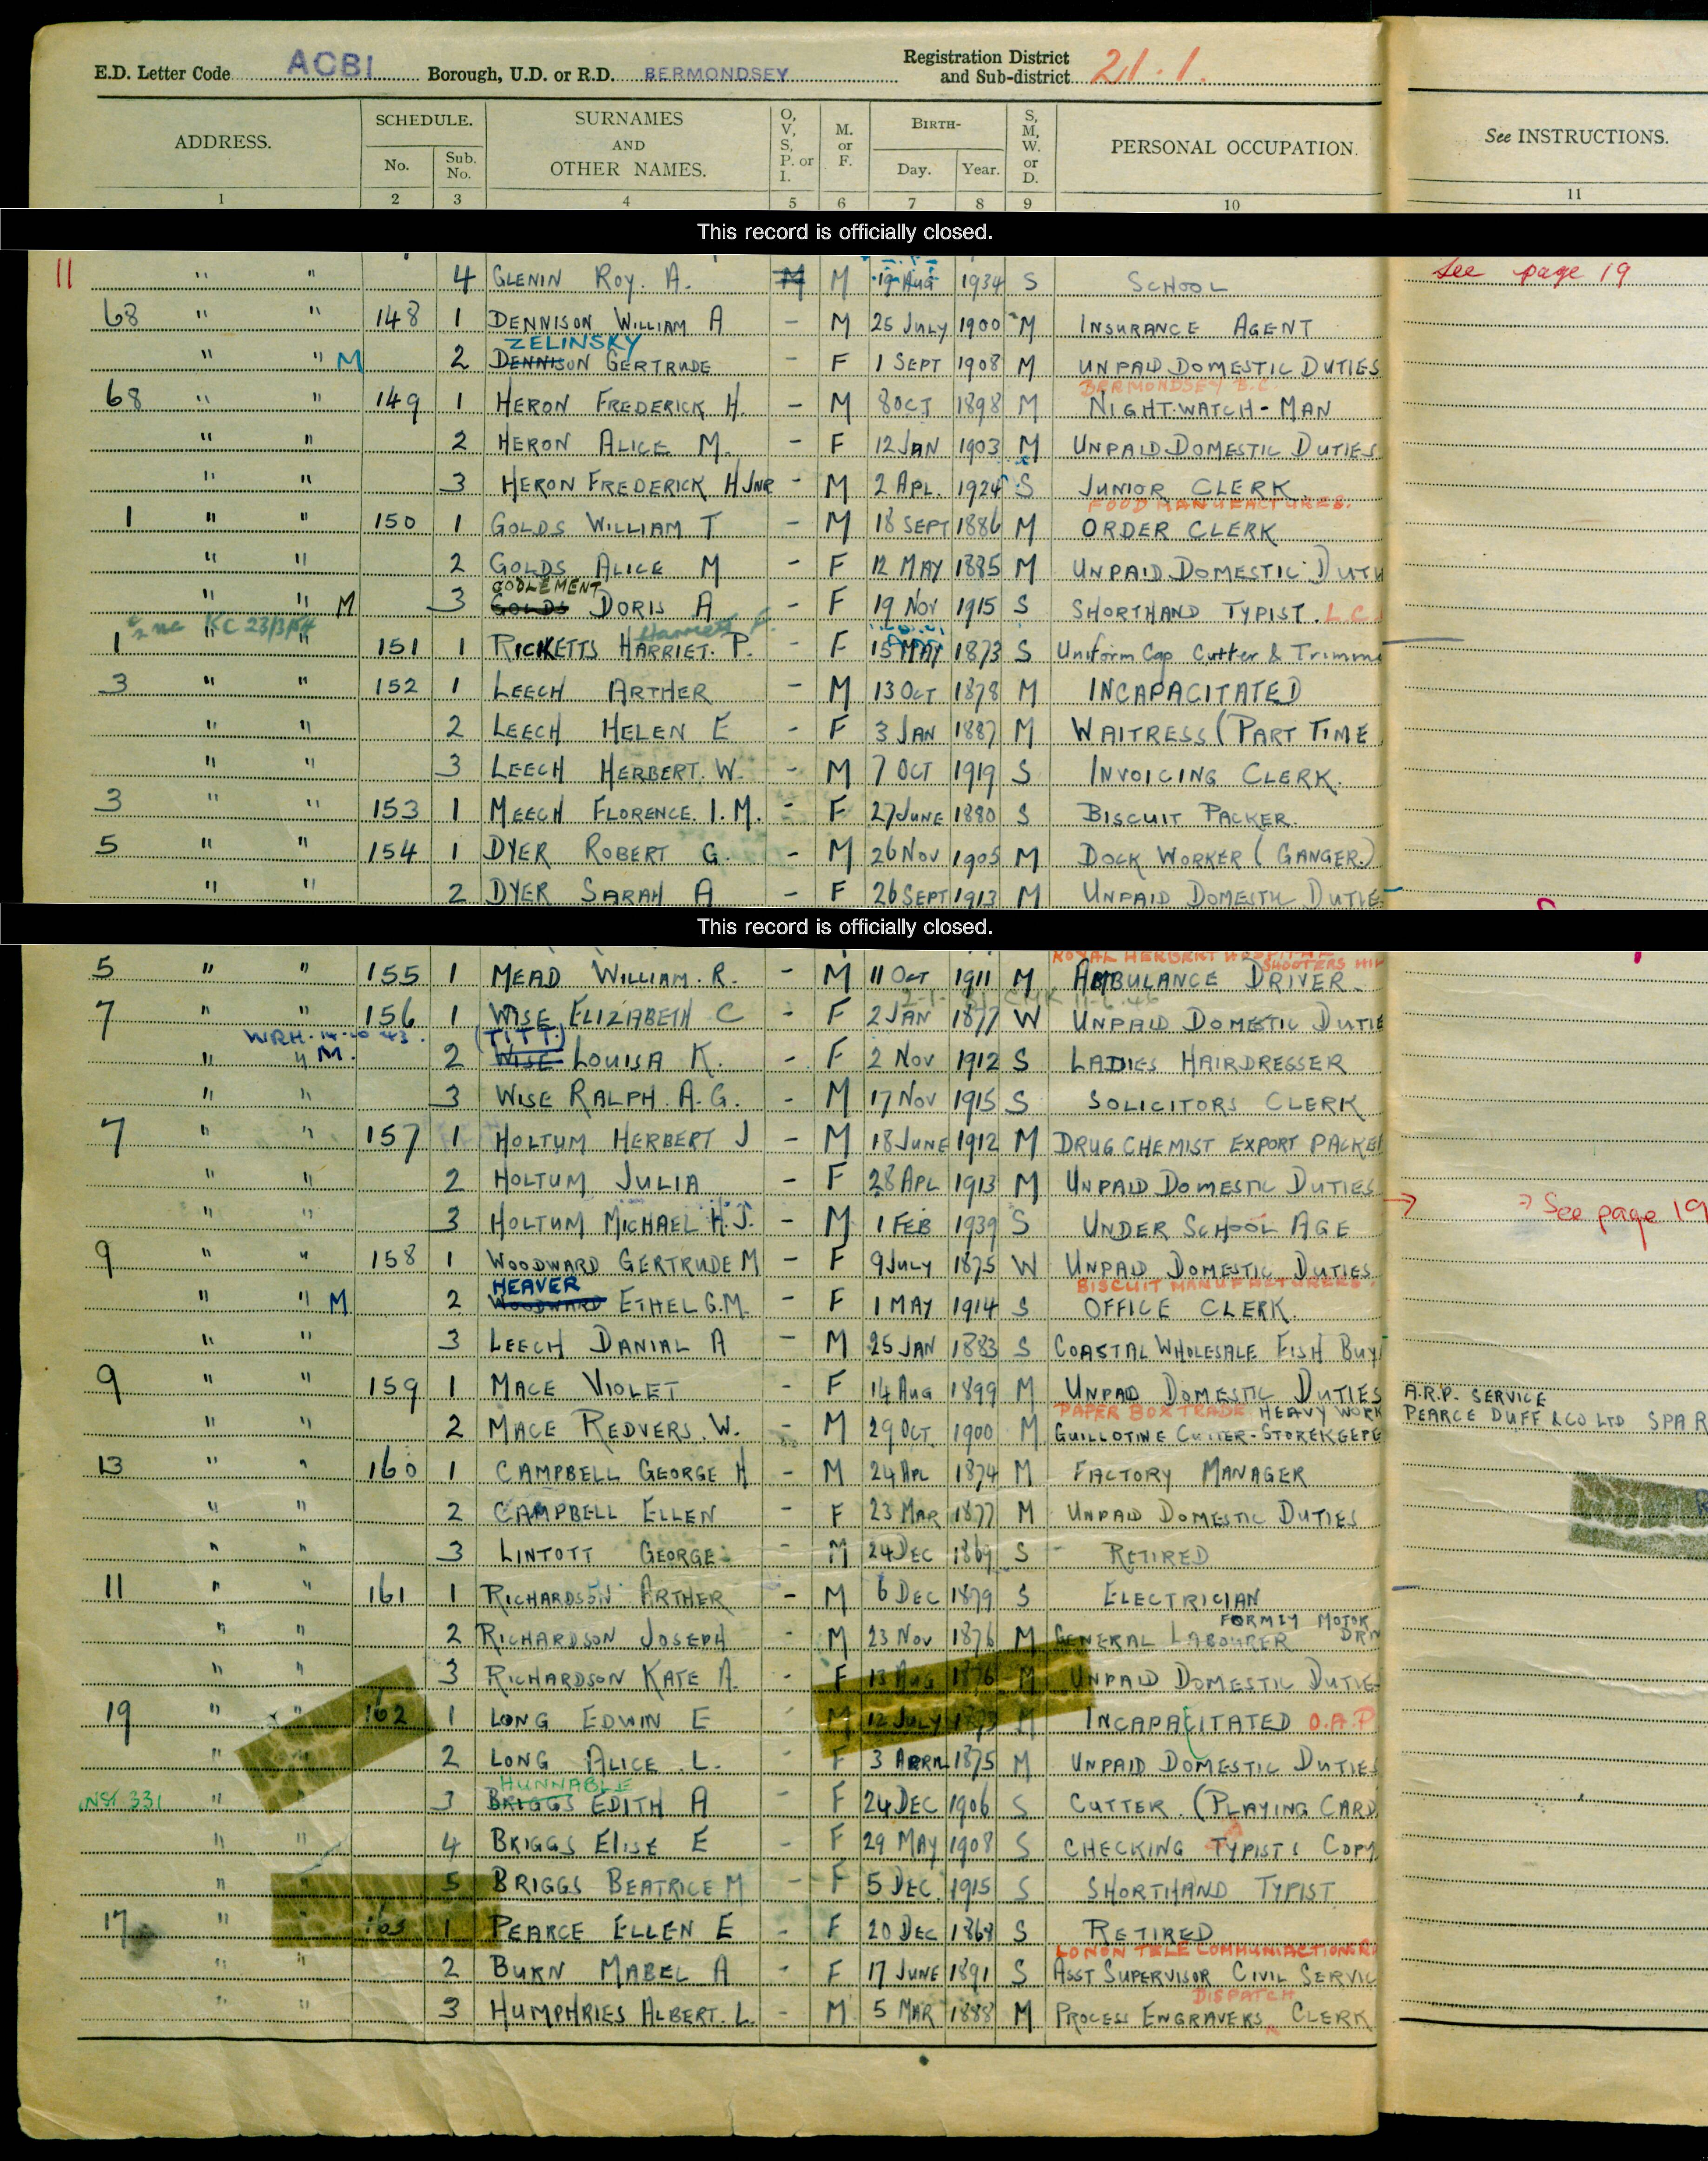 E.D. Letter Code ACBI Borough, U.D. or R.D. BERMONDSEY Registration District and Sub-district 21.1.
ADDRESS. SCHEDULE. No. Sub. No. SURNAMES AND OTHER NAMES. O, V, S, P. or I. M. or F. BIRTH- Day. Year. S, M, W. or D. PERSONAL OCCUPATION. See INSTRUCTIONS.
1 2 3 4 5 6 7 8 9 10 11
This record is officially closed.
11 " " 4 GLENIN ROY. A. M M 19 AUG 1934 S SCHOOL See page 19
68 " " 148 1 DENNISON WILLIAM A - M 25 JULY 1900 M INSURANCE AGENT
ZELINSKY
" " M 2 DENNISON GERTRUDE - F 1 SEPT 1908 M UNPAID DOMESTIC DUTIES
BERMONDSEY B.C.
68 " " 149 1 HERON FREDERICK H. - M 8 OCT 1898 M NIGHT-WATCH-MAN
" " 2 HERON ALICE M. - F 12 JAN 1903 M UNPAID DOMESTIC DUTIES
" " 3 HERON FREDERICK H JNR - M 2 APL. 1924 S JUNIOR CLERK
FOOD MANUFACTURES.
1 " " 150 1 GOLDS WILLIAM T - M 18 SEPT 1886 M ORDER CLERK
" " 2 GOLDS ALICE M - F 12 MAY 1885 M UNPAID DOMESTIC DUTI
GODLEMENT
" " M 3 GOLDS DORIS A - F 19 NOV 1915 S SHORTHAND TYPIST. L.C.
KC 23/3/54 Harriett P.
1 " " 151 1 RICKETTS HARRIET. P. - F 15 MAY 1873 S Uniform Cap Cutter & Trimm
3 " " 152 1 LEECH ARTHER - M 13 OCT 1878 M INCAPACITATED
" " 2 LEECH HELEN E - F 3 JAN 1887 M WAITRESS (PART TIME
" " 3 LEECH HERBERT. W. - M 7 OCT 1919 S INVOICING CLERK.
3 " " 153 1 MEECH FLORENCE. I. M. - F 27 JUNE 1880 S BISCUIT PACKER.
5 " " 154 1 DYER ROBERT G. - M 26 NOV 1905 M DOCK WORKER (GANGER.)
" " 2 DYER SARAH A - F 26 SEPT 1913 M UNPAID DOMESTIC DUTIE
This record is officially closed.
ROYAL HERBERT HOSPITAL SHOOTERS HIL
5 " " 155 1 MEAD WILLIAM. R. - M 11 OCT 1911 M AMBULANCE DRIVER.
7 " " 156 1 WISE ELIZABETH C - F 2 JAN 1877 W UNPAID DOMESTIC DUTIE
WRH. 14-10-43. (TITT.)
" " M. 2 WISE LOUISA K. - F 2 NOV 1912 S LADIES HAIRDRESSER
" " 3 WISE RALPH. A. G. - M 17 NOV 1915 S SOLICITORS CLERK
7 " " 157 1 HOLTUM HERBERT J - M 18 JUNE 1912 M DRUG CHEMIST EXPORT PACKE
" " 2 HOLTUM JULIA - F 28 APL 1913 M UNPAID DOMESTIC DUTIES
" " 3 HOLTUM MICHAEL H.J. - M 1 FEB 1939 S UNDER SCHOOL AGE See page 19
9 " " 158 1 WOODWARD GERTRUDE M - F 9 JULY 1875 W UNPAID DOMESTIC DUTIES
HEAVER BISCUIT MANUFACTURERS
" " M 2 WOODWARD ETHEL G.M. - F 1 MAY 1914 S OFFICE CLERK.
" " 3 LEECH DANIAL A - M 25 JAN 1883 S COASTAL WHOLESALE FISH BUY
9 " " 159 1 MACE VIOLET - F 14 AUG 1899 M UNPAID DOMESTIC DUTIES A.R.P. SERVICE
PAPER BOX TRADE HEAVY WORK
" " 2 MACE REDVERS. W. - M 29 OCT. 1900 M GUILLOTINE CUTTER-STOREKEEPE PEARCE DUFF & CO LTD SPA R
13 " " 160 1 CAMPBELL GEORGE H - M 24 APL 1874 M FACTORY MANAGER
" " 2 CAMPBELL ELLEN - F 23 MAR 1877 M UNPAID DOMESTIC DUTIES
" " 3 LINTOTT GEORGE - M 24 DEC 1869 S RETIRED
11 " " 161 1 RICHARDSON ARTHER - M 6 DEC 1879 S ELECTRICIAN
FORMLY MOTOR DRIV
" " 2 RICHARDSON JOSEPH - M 23 NOV 1876 M GENERAL LABOURER
" " 3 RICHARDSON KATE A. - F 13 AUG 1876 M UNPAID DOMESTIC DUTIE
19 " " 162 1 LONG EDWIN E - M 12 JULY M INCAPACITATED O.A.P
" " 2 LONG ALICE. L. - F 3 APRIL 1875 M UNPAID DOMESTIC DUTIES
HUNNABLE
NSF 331 " " 3 BRIGGS EDITH A - F 24 DEC 1906 S CUTTER. (PLAYING CARD
" " 4 BRIGGS ELISE E - F 29 MAY 1908 S CHECKING TYPISTS COPY
" " 5 BRIGGS BEATRICE M - F 5 DEC 1915 S SHORTHAND TYPIST
17 " " 163 1 PEARCE ELLEN E - F 20 DEC 1868 S RETIRED
LONON TELECOMMUNIACTIONS R
" " 2 BURN MABEL A - F 17 JUNE 1891 S ASST SUPERVISOR CIVIL SERVIC
DISPATCH
" " 3 HUMPHRIES ALBERT. L. - M 5 MAR 1888 M PROCESS ENGRAVERS CLERK